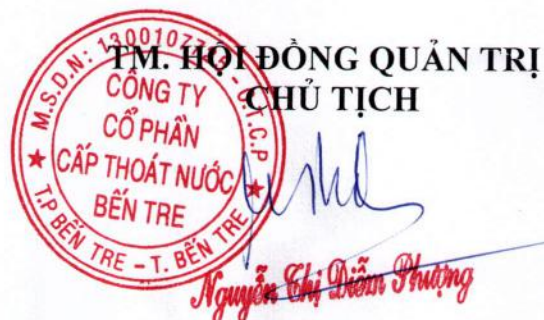 TM. HỘI ĐỒNG QUẢN TRỊ
CHỦ TỊCH
CÔNG TY
CỔ PHẦN
CẤP THOÁT NƯỚC
BẾN TRE
T.P BẾN TRE - T. BẾN TRE
Nguyễn Thị Diễm Phượng